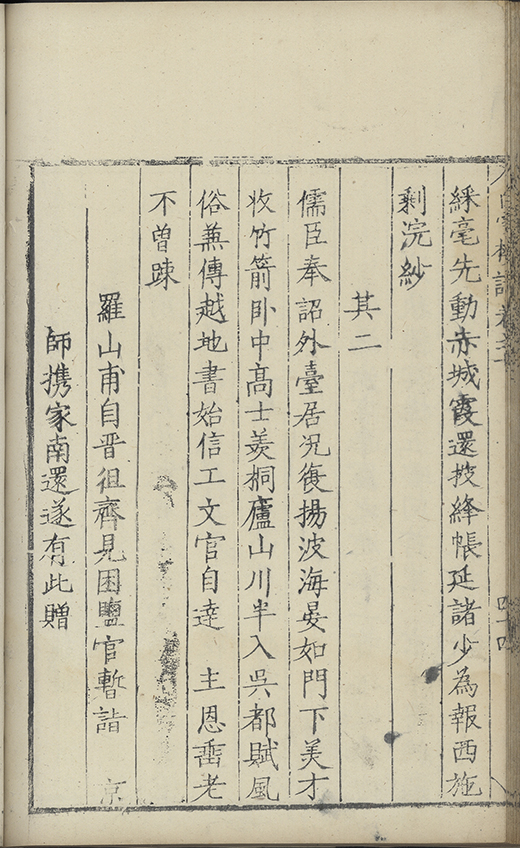 綵毫先動赤城霞還披絳帳延諸少為報西施
剩浣紗
其二
儒臣奉詔外臺居况復揚波海晏如門下美才
收竹箭卧中髙士羨桐廬山川半入吳都賦風
俗兼傳越地書始信工文官自逹　主恩垂老
不曾踈
羅山甫自晋徂齊見困鹽官暫詣　京
師携家南還遂有此贈